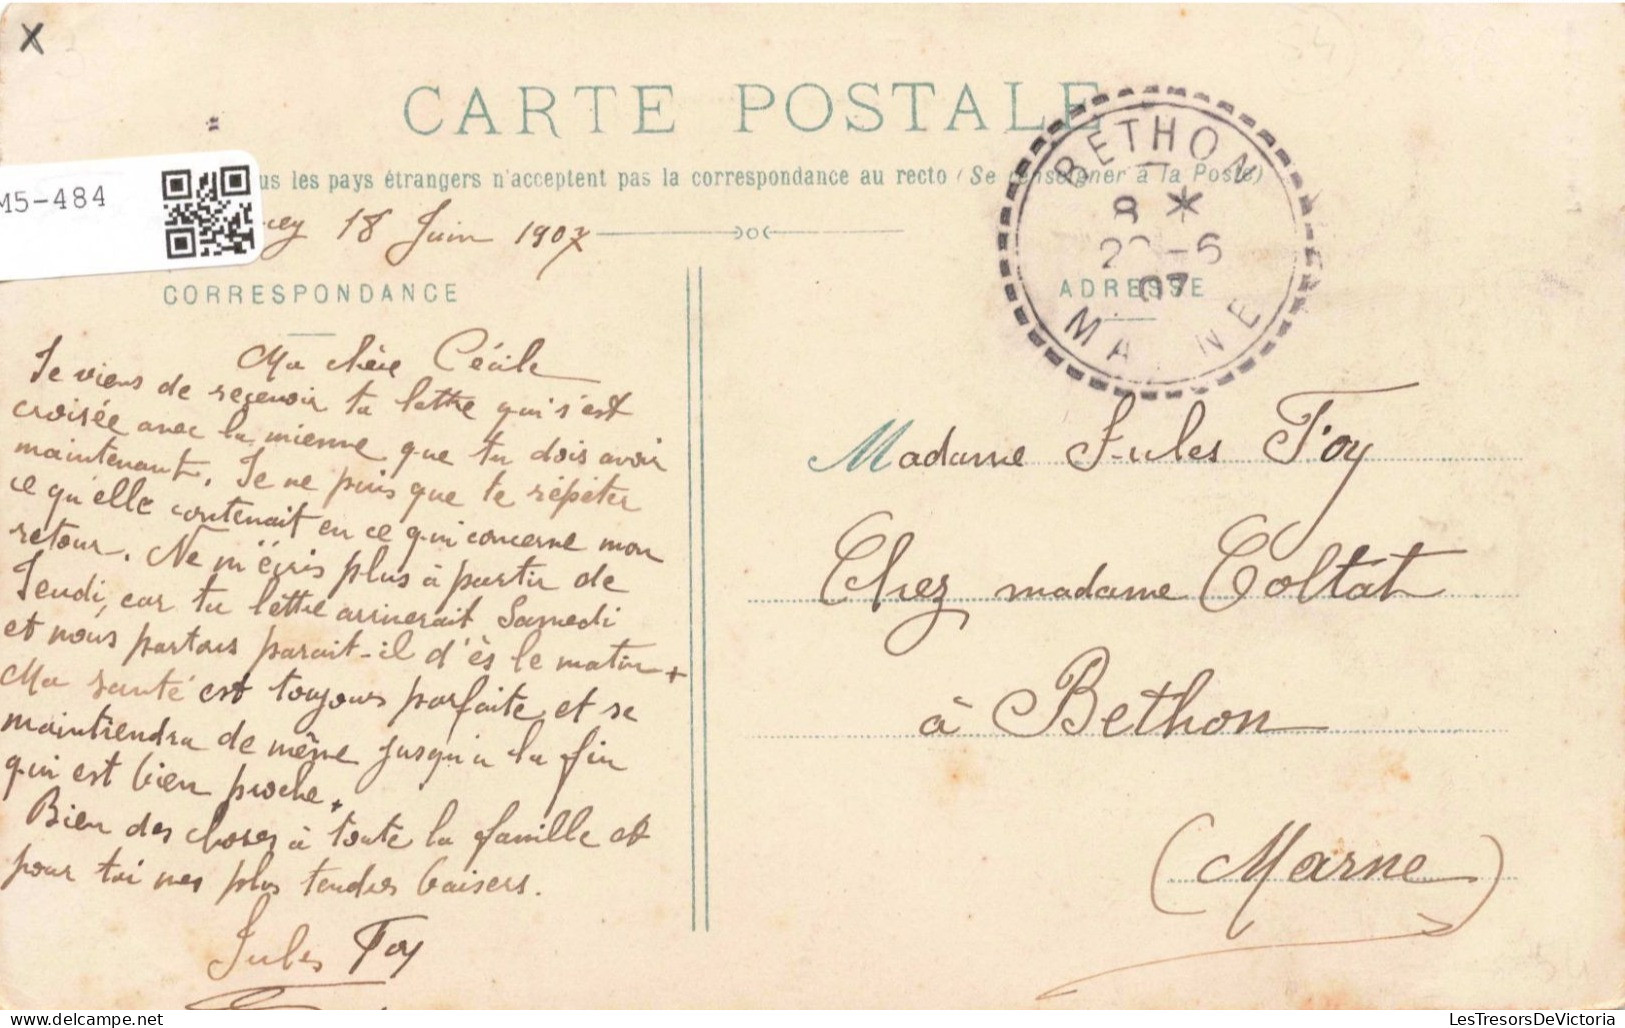 X
CARTE POSTALE
M5-484
us les pays étrangers n'acceptent pas la correspondance au recto (Se renseigner à la Poste)
18 Juin 1907
CORRESPONDANCE
Ma chère Cécile
Je viens de recevoir ta lettre qui s'est
croisée avec la mienne que tu dois avoir
maintenant. Je ne puis que te répéter
ce qu'elle contenait en ce qui concerne mon
retour. Ne m'écris plus à partir de
Jeudi, car ta lettre arriverait Samedi
et nous partons parait-il d'ès le matin
Ma santé est toujours parfaite et se
maintiendra de même jusqu'à la fin
qui est bien proche.
Bien des choses à toute la famille et
pour toi mes plus tendres baisers.
Jules Foy
BETHON
8 *
20-6
07
MARNE
ADRESSE
Madame Jules Foy
Chez madame Coltat
à Bethon
(Marne)
LesTresorsDeVictoria